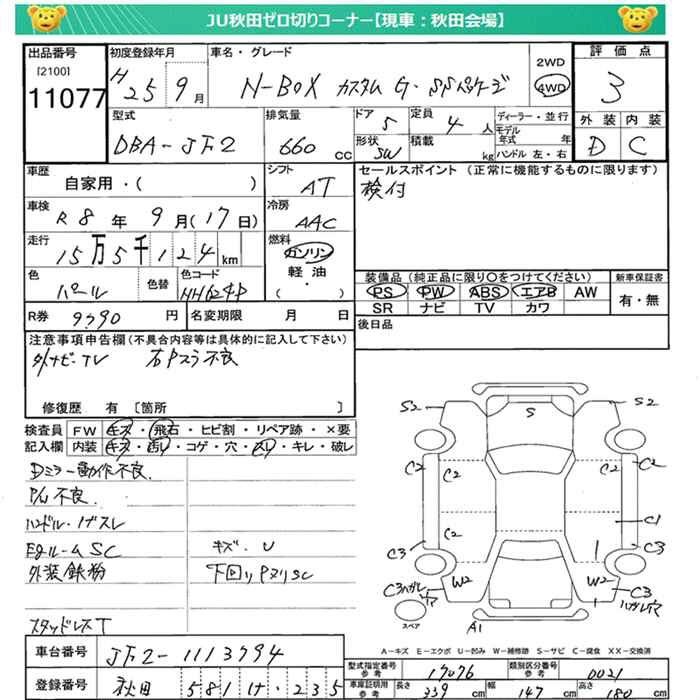 JU秋田ゼロ切りコーナー【現車：秋田会場】
出品番号
[2100]
11077
初度登録年月
H 25 9月
車名・グレード
N-BOX カスタム G・SSパッケージ
2WD
4WD
評価点
3
外装 内装
D C
型式
DBA-JF2
排気量
660 cc
ドア
5
定員
4 人
形状
SW
積載
kg
ディーラー・並行
モデル年式 年
ハンドル 左・右
車歴
自家用・( )
シフト
AT
セールスポイント (正常に機能するものに限ります)
検付
車検
R 8 年 9 月(17 日)
冷房
AAC
走行
15万5千124km
燃料
ガソリン
軽油
( )
色
パール
色替
色コード
NH624P
装備品 (純正品に限り○をつけてください)
PS PW ABS エアB AW
SR ナビ TV カワ
新車保証書
有・無
R券 9390 円
名変期限 月 日
後日品
注意事項申告欄(不具合内容等は具体的に記入して下さい)
外ナビ・TV 右Pスラ不良
修復歴 有〔箇所 〕
検査員記入欄
FW キズ・飛石・ヒビ割・リペア跡・×要
内装 キズ・汚レ・コゲ・穴・スレ・キレ・破レ
Dミラー動作不良
P/W不良
ハンドル・Iゲスレ
EgルームSC キズ・U
外装鉄粉 下回りPヌリSC
スタッドレスT
S2 S S2
C2 C2 C2
C2 C1
C3 C3
W2 W2
C3ハガレ C3
ハガレ穴
スペア
A1
A-キズ E-エクボ U-凹み W-補修跡 S-サビ C-腐食 XX-交換済
車台番号
JF2-1113794
登録番号
秋田 581 け 235
型式指定番号 参考
17076
類別区分番号 参考
0021
車庫証明用 参考
長さ 339 cm 幅 147 cm 高さ 180 cm